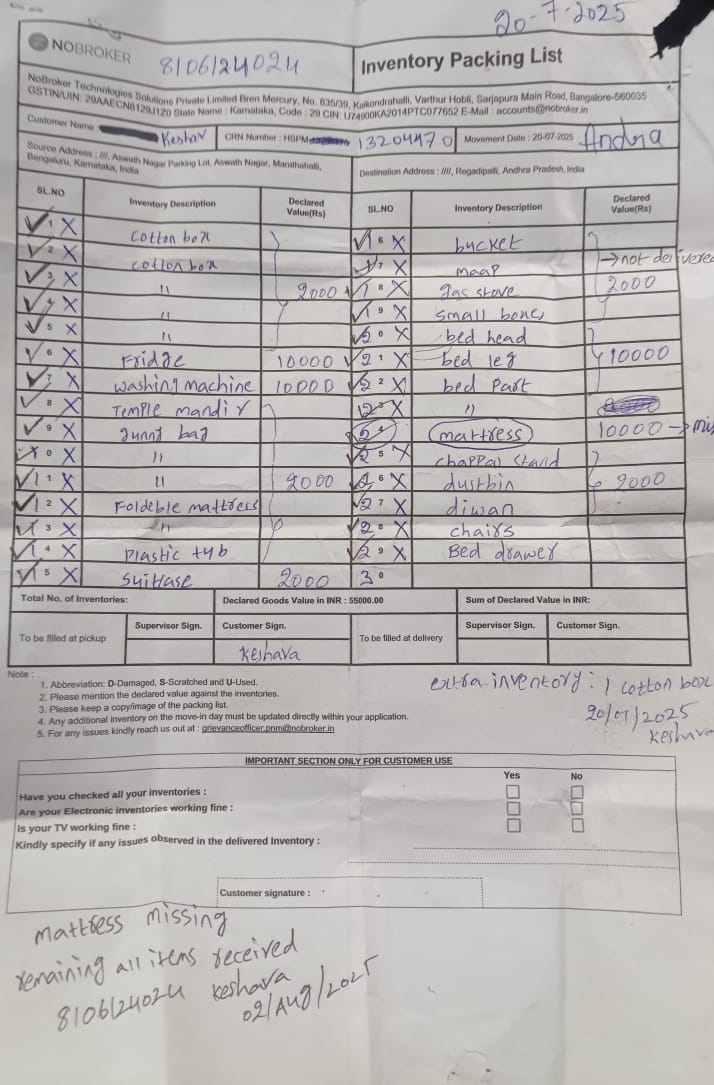 20-7-2025
NOBROKER
8106124024
Inventory Packing List
NoBroker Technologies Solutions Private Limited Bren Mercury, No. 835/39, Kaikondrahalli, Varthur Hobli, Sarjapura Main Road, Bangalore-560035
GSTIN/UIN: 29AAECN8129J1Z0 State Name : Karnataka, Code : 29 CIN: U74900KA2014PTC077652 E-Mail : accounts@nobroker.in
Customer Name : Keshav CRN Number : HSPM 13204470 Movement Date : 20-07-2025 Andra
Source Address : ///, Aswath Nagar Parking Lot, Aswath Nagar, Marathahalli, Bengaluru, Karnataka, India
Destination Address : ////, Regadipalli, Andhra Pradesh, India
SL.NO Inventory Description Declared Value(Rs) SL.NO Inventory Description Declared Value(Rs)
1 X Cotton box 16 X bucket
2 X cotton box 17 X maap → not delivered
3 X " 2000 18 X gas stove 2000
4 X " 19 X small bone
5 X " 20 X bed head
6 X Fridge 10000 21 X bed leg 10000
7 X washing machine 10000 22 X bed part
8 X Temple mandir 23 X "
9 X gunny bag 24 mattress 10000 →
10 X " 25 X chappal stand
11 X " 2000 26 X dustbin 2000
12 X Foldeble mattress 27 X diwan
13 X " 28 X chairs
14 X Plastic tub 29 X Bed drawer
15 X suitIase 2000 30
Total No. of Inventories: Declared Goods Value in INR : 55000.00 Sum of Declared Value in INR:
To be filled at pickup Supervisor Sign. Customer Sign. To be filled at delivery Supervisor Sign. Customer Sign.
Keshava
Note :
1. Abbreviation: D-Damaged, S-Scratched and U-Used.
2. Please mention the declared value against the inventories.
3. Please keep a copy/image of the packing list.
4. Any additional inventory on the move-in day must be updated directly within your application.
5. For any issues kindly reach us out at : grievanceofficer.pnm@nobroker.in
extra inventory : 1 cotton box
20/07/2025
Keshava
IMPORTANT SECTION ONLY FOR CUSTOMER USE
Yes No
Have you checked all your inventories :
Are your Electronic inventories working fine :
Is your TV working fine :
Kindly specify if any issues observed in the delivered Inventory :
Customer signature :
mattress missing
remaining all items received
8106124024 keshava
02/Aug/2025